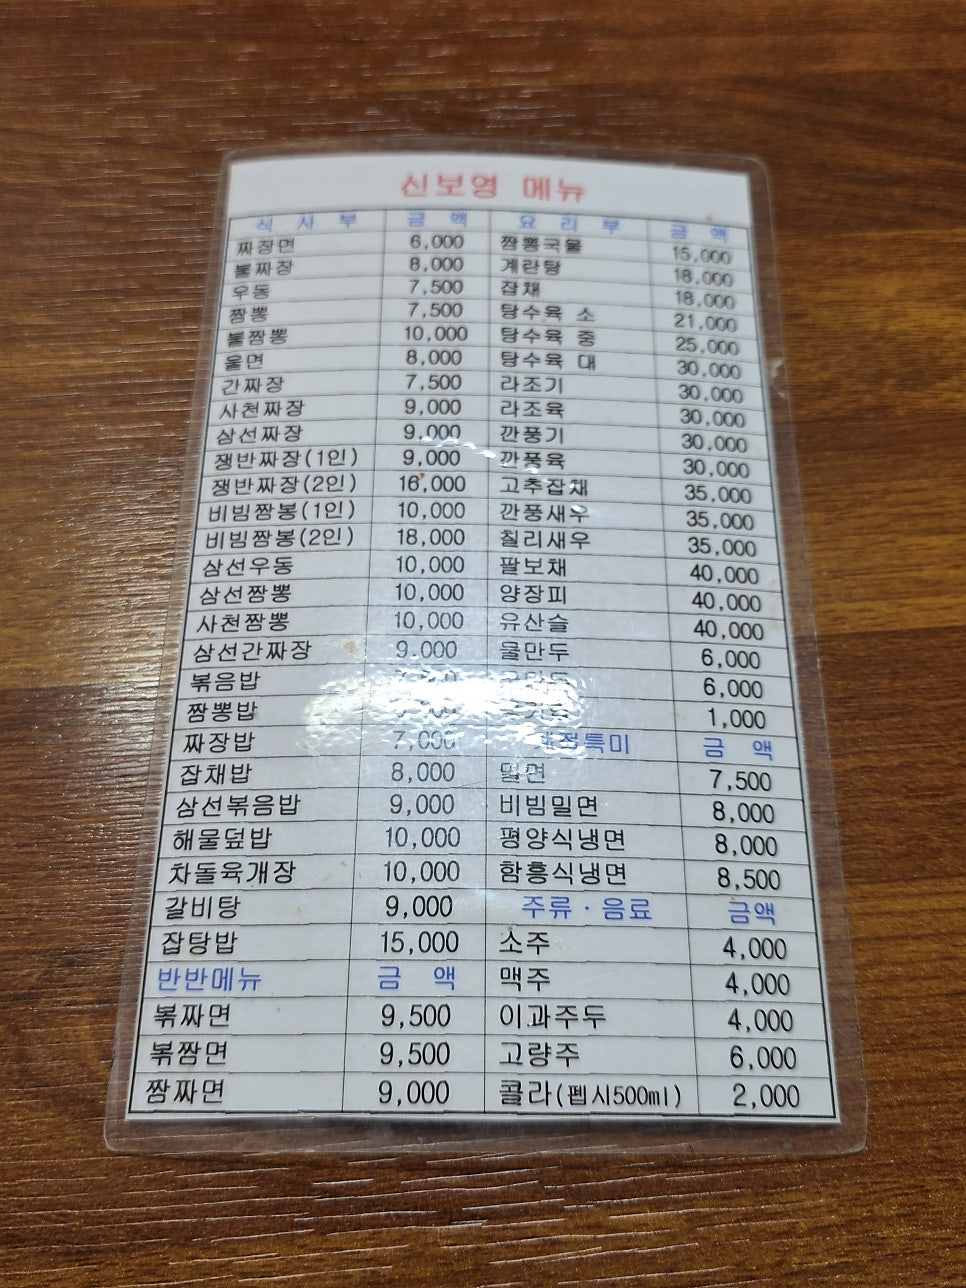 신보영 메뉴
식 사 부 금 액 요 리 부 금 액
짜장면 6,000 짬뽕국물 15,000
불짜장 8,000 계란탕 18,000
우동 7,500 잡채 18,000
짬뽕 7,500 탕수육 소 21,000
불짬뽕 10,000 탕수육 중 25,000
울면 8,000 탕수육 대 30,000
간짜장 7,500 라조기 30,000
사천짜장 9,000 라조육 30,000
삼선짜장 9,000 깐풍기 30,000
쟁반짜장(1인) 9,000 깐풍육 30,000
쟁반짜장(2인) 16,000 고추잡채 35,000
비빔짬봉(1인) 10,000 깐풍새우 35,000
비빔짬봉(2인) 18,000 칠리새우 35,000
삼선우동 10,000 팔보채 40,000
삼선짬뽕 10,000 양장피 40,000
사천짬뽕 10,000 유산슬 40,000
삼선간짜장 9,000 물만두 6,000
볶음밥 군만두 6,000
짬뽕밥 1,000
짜장밥 7,000 금 액
잡채밥 8,000 밀면 7,500
삼선볶음밥 9,000 비빔밀면 8,000
해물덮밥 10,000 평양식냉면 8,000
차돌육개장 10,000 함흥식냉면 8,500
갈비탕 9,000 주류·음료 금액
잡탕밥 15,000 소주 4,000
반반메뉴 금 액 맥주 4,000
볶짜면 9,500 이과주두 4,000
볶짬면 9,500 고량주 6,000
짬짜면 9,000 콜라(펩시500ml) 2,000